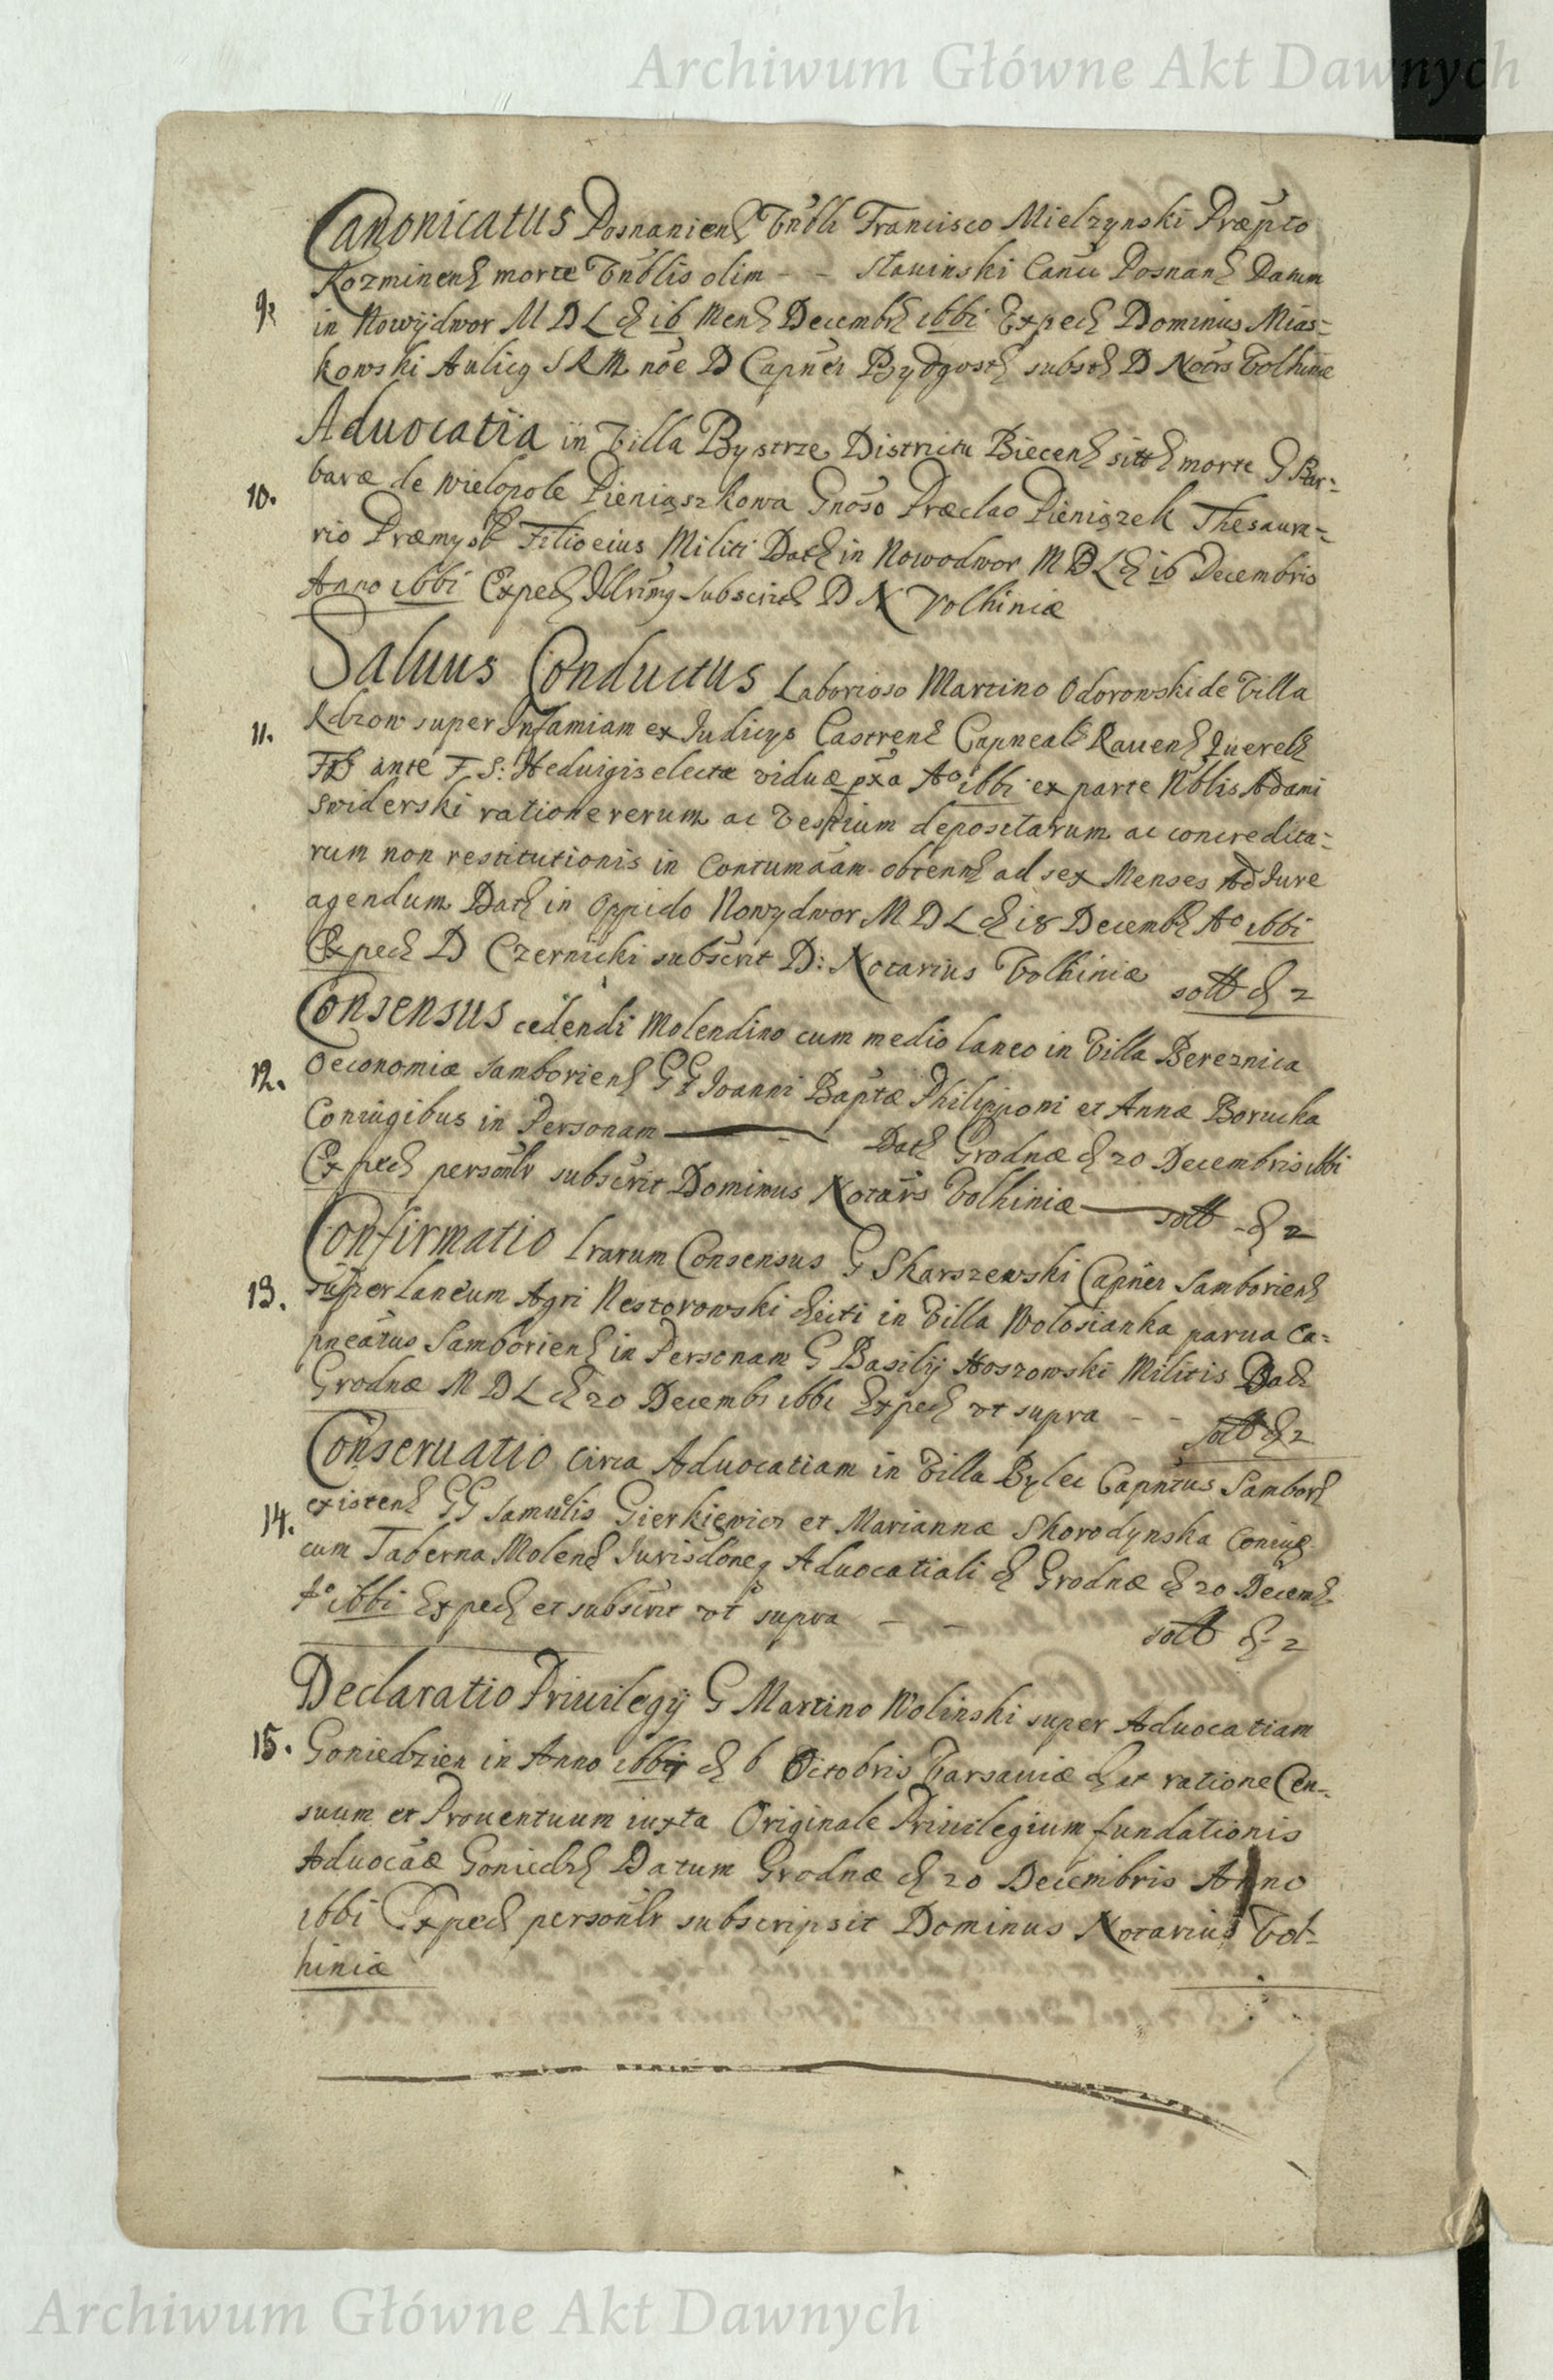 Archiwum Główne Akt Dawnych
Canonicatus Posnanien Vnbli Francisco Mielzynski Præpto
Kozminen morte Vnblis olim - - Stauinski Canci Posnan Datum
9. in Nowydwor M D L d 16 Men Decembr 1661 Exped Dominus Mias=
kowski Aulicq S R M nõe D Capnei Bydgost subst D Notrs Volhiniæ
Aduocatia in Villa Bystrze Districtu Biecen morte G Bar=
10. baræ de Wielopole Pieniąszkowa Gnoso Præclao Pieniązek Thesaura=
rio Præmysl Filio eius Militi Dat in Nowodwor M D L d 16 Decembris
Anno 1661 Exped Subscrit D N Volhiniæ
Saluus Conductus Laborioso Martino Odorowski de Villa
11. Kdzow super Infamiam ex Iudicys Castren Capneal Rauen Querel
ante F S: Heduigis electæ viduæ pxa Aº 1661 ex parte Nblis Adami
Swiderski ratione rerum ac Vestium depositarum ac concredita=
rum non restitutionis in Contumaciam obtent ad sex Menses Iure
agendum Dat in Oppido Nowydwor M D L d 18 Decemb Aº 1661
Exped D Czernicki subscrit D: Notarius Volhiniæ solt d 2
Consensus cedendi Molendino cum medio laneo in Villa Bereznica
12. Oeconomiæ Samborien GG Ioanni Baptæ Philipponi et Annæ Borucka
Coniugibus in Personam Dat Grodnæ d 20 Decembris 1661
Exped personlr subscrit Dominus Notars Volhiniæ solt d 2
Confirmatio Lrarum Consensus G Skarszewski Capnei Samborien
13. super Laneum Agri Nestorowski dicti in Villa Wolosianka parua Ca=
pneatus Samborien in Personam G Basilij Hoszowski Militis Dat
Grodnæ M D L d 20 Decemb 1661 Exped vt supra - - solt d 2
Conseruatio circa Aduocatiam in Villa Bylee Capntus Sambor
14. existen GG Samuelis Gierkiewicz et Mariannæ Skorodynska Coniug
cum Taberna Molend Iurisdoneq Aduocatiali d Grodnæ d 20 Decem
Aº 1661 Exped et subscrit vt supra - - solt d 2
Declaratio Priuilegij G Martino Wolinski super Aduocatiam
15. Goniedzien in Anno 1661 d 6 Octobris Varsauiæ et ratione Cen=
suum et Prouentuum iuxta Originale Priuilegium fundationis
Aduocaæ Goniedz Datum Grodnæ d 20 Decembris Anno
1661 Exped personlr subscripsit Dominus Notarius Vol=
hiniæ
Archiwum Główne Akt Dawnych